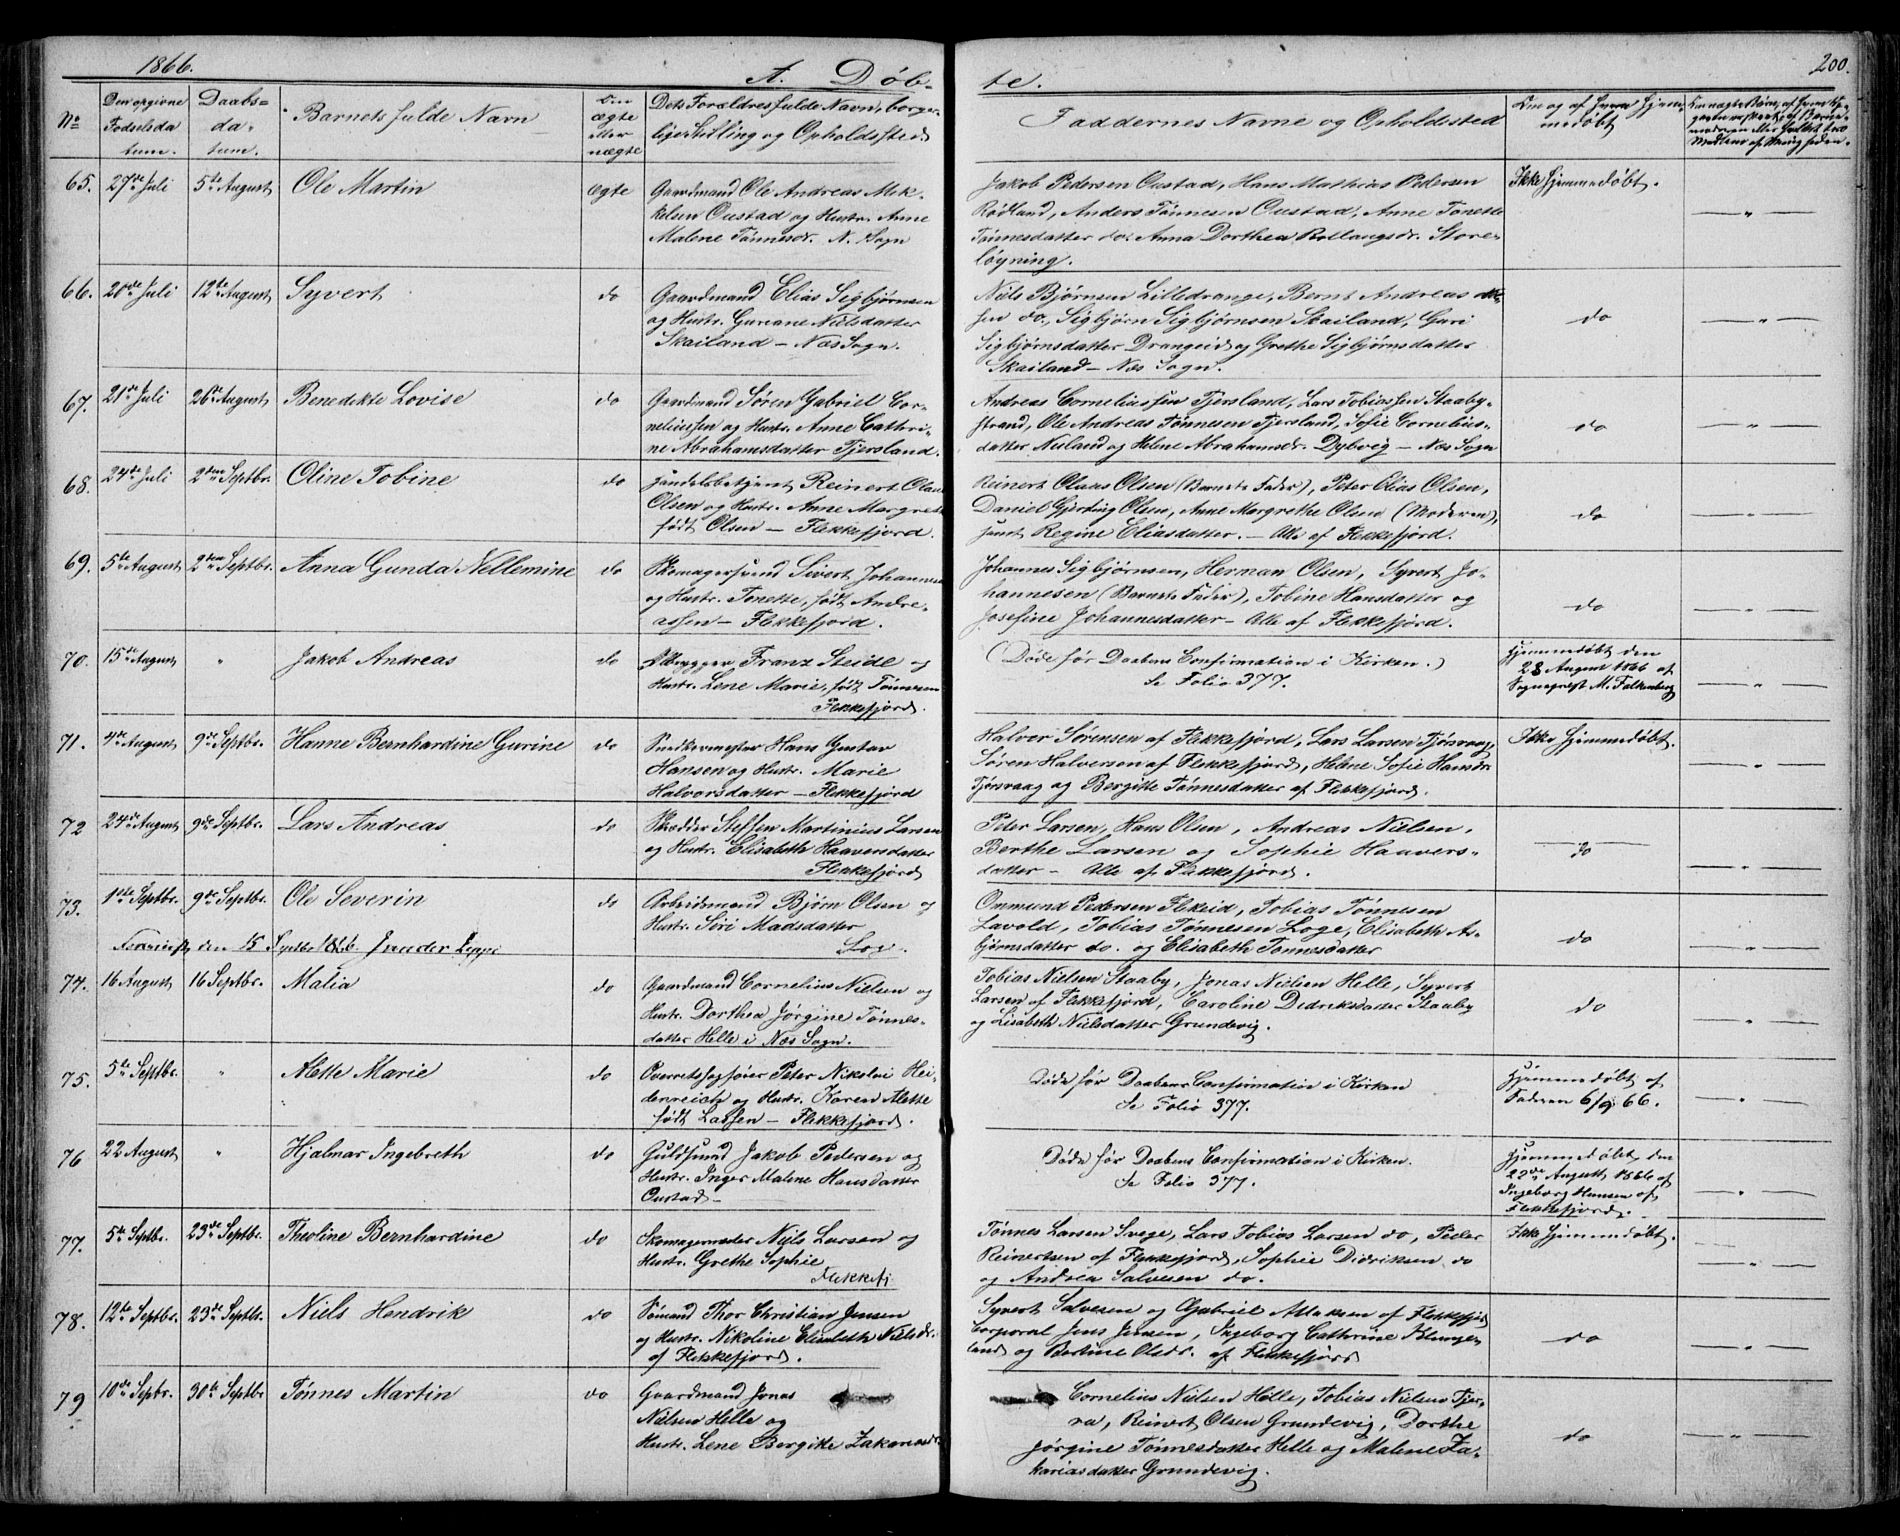 1866.
A. Døb-
te.
200.
No
Den opgivne Fødselsdatum.
Daabsdatum.
Barnets fulde Navn
Om ægte eller uægte
Dets Forældres fulde Navn, borgerlige Stilling og Opholdssted
Faddernes Navne og Opholdssted
Om og af hvem hjemmedøbt
65. 27de Juli 5te August Ole Martin ægte
Gaardmand Ole Andreas Mik-
kelsen Oustad og Hustr. Anne
Malene Tønnesdr. N. Sogn
Jakob Pedersen Oustad, Hans Mathias Pedersen
Rødland, Anders Tønnesen Oustad, Anne Tonette
Tønnesdatter do. Anna Dorthea Rollaugsdr. Store-
løyning.
Ikke hjemmedøbt.
66. 20de Juli 12te August Syvert do
Gaardmand Elias Sigbjørnsen
og Hustr. Guriane Nielsdatter
Skailand - Næs Sogn.
Niels Bjørnsen Lilledrange, Bernt Andreas
sen do., Sigbjørn Sigbjørnsen Skailand, Guri
Sigbjørnsdatter Drangeid og Grethe Sigbjørnsdatter
Skailand - Næs Sogn.
do
67. 21de Juli 26de August Benedikte Lovise do
Gaardmand Søren Gabriel Cor-
neliussen og Hustr. Anne Cathri-
ne Abrahamsdatter Tjersland.
Andreas Corneliussen Tjersland, Lars Tobiassen Staaby-
strand, Ole Andreas Tønnesen Tjersland, Sofie Cornelius-
datter Nuland og Helene Abrahamsdr. Dybvig - Næs Sogn
do
68. 24de Juli 2den Septbr. Oline Tobine do
Handelsbetjent Reinert Olaus
Olsen og Hustr. Anne Margrete
født Olsen - Flekkefjord.
Reinert Olaus Olsen (Barnets Fader), Peter Elias Olsen,
Daniel Gjerting Olsen, Anne Margrethe Olsen (Moderen),
samt Regine Eliasdatter. - Alle af Flekkefjord.
do
69. 5te August 2den Septbr. Anna Gunda Nellemine do
Skomagersvend Sivert Johannesen
og Hustr. Tonette, født Andre-
assen - Flekkefjord.
Johannes Sigbjørnsen, Herman Olsen, Syvert Jo-
hannesen (Barnets Fader), Tobine Hansdatter og
Josefine Johannesdatter - Alle af Flekkefjord.
do
70. 15de August " Jakob Andreas do
Ølbrygger Franz Steide og
Hustr. Lene Marie, født Tønnesen
Flekkefjord.
(Døde før Daabens Confirmation i Kirken.)
Se Folio 377.
Hjemmedøbt den
28 August 1866 af
Sogneprest M. Falkenberg
71. 4de August 9de Septbr. Hanne Bernhardine Gurine do
Snedkermester Hans Gustav
Hansen og Hustr. Marie
Halvorsdatter - Flekkefjord
Halvor Sørensen af Flekkefjord, Lars Larsen Tjørsvaag,
Søren Halvorsen af Flekkefjord, Helene Sofie Hansdr.
Tjørsvaag og Bergitte Tønnesdatter af Flekkefjord.
Ikke hjemmedøbt.
72 24de August 9de Septbr. Lars Andreas do
Skrædder Steffen Martinius Larsen
og Hustr. Elisabeth Haaversdatter
Flekkefjord
Peter Larsen, Hans Olsen, Andreas Nielsen,
Berthe Larsen og Sophie Haavers-
datter - Alle af Flekkefjord.
do
73. 1ste Septbr. 9de Septbr. Ole Severin do
Arbeidsmand Bjørn Olsen og
Hustr. Siri Madsdatter
Log.
Ommund Pedersen Flikeid, Tobias Tønnesen
Lavold, Tobias Tønnesen Loge, Elisabeth As-
bjørnsdatter do. og Elisabeth Tonnesdatter
do
den 15
74. 16 August 16 Septbr. Malia do
Gaardmand Cornelius Nielsen og
Hustr. Dorthea Jørgine Tønnes-
datter Helle i Næs Sogn.
Tobias Nielsen Staaby, Jonas Nielsen Helle, Syvert
Larsen af Flekkefjord, Caroline Didriksdatter Staaby
og Lisabeth Nielsdatter Grundevig.
do
75. 5te Septbr. " Alette Marie do
Overretssagfører Peter Nikolai Hei-
denreich og Hustr. Karen Alette
født Lassen - Flekkefjord.
Døde før Daabens Confirmation i Kirken
Se Folio 377.
Hjemmedøbt af
Faderen 6/9 66.
76 22 August " Hjalmar Ingebreth do
Guldsmed Jakob Pedersen og
Hustr. Inger Malene Hansdatter
Oustad -
Døde før Daabens Confirmation i Kirken.
Se Folio 377.
Hjemmedøbt den
22de August 1866 af
Ingeborg Hansen af
Flekkefjord.
77. 5te Septbr. 23de Septbr. Theoline Bernhardine do
Skomagermester Niels Larsen og
Hustr. Grethe Sophie
Flekkefj.
Tønnes Larsen Svege, Lars Tobias Larsen do, Peder
Reinertsen af Flekkefjord, Sophie Didriksen do
og Andrea Salvesen do.
Ikke hjemmedøbt.
78. 12te Septbr. 23de Septbr. Niels Hendrik do
Sømand Thor Christian Jensen
og Hustr. Nikoline Elisabeth Nielsdr.
af Flekkefjord.
Syvert Salvesen og Gabriel Aslaksen af Flekkefjord
Corporal Jens Jensen, Ingeborg Cathrine
land og Bertine Olsdr. af Flekkefjord
do
79 10de Septbr. 30te Septbr Tønnes Martin do
Gaardmand Jonas
Nielsen Helle og
Hustr. Lene Bergitte Zakariasdr.
Cornelius Nielsen Helle, Tobias Nielsen Tjør-
va, Reinert Olsen Grundevig, Dorthe
Jørgine Tønnesdatter Helle og Malene Za-
kariasdatter Grundevig.
do